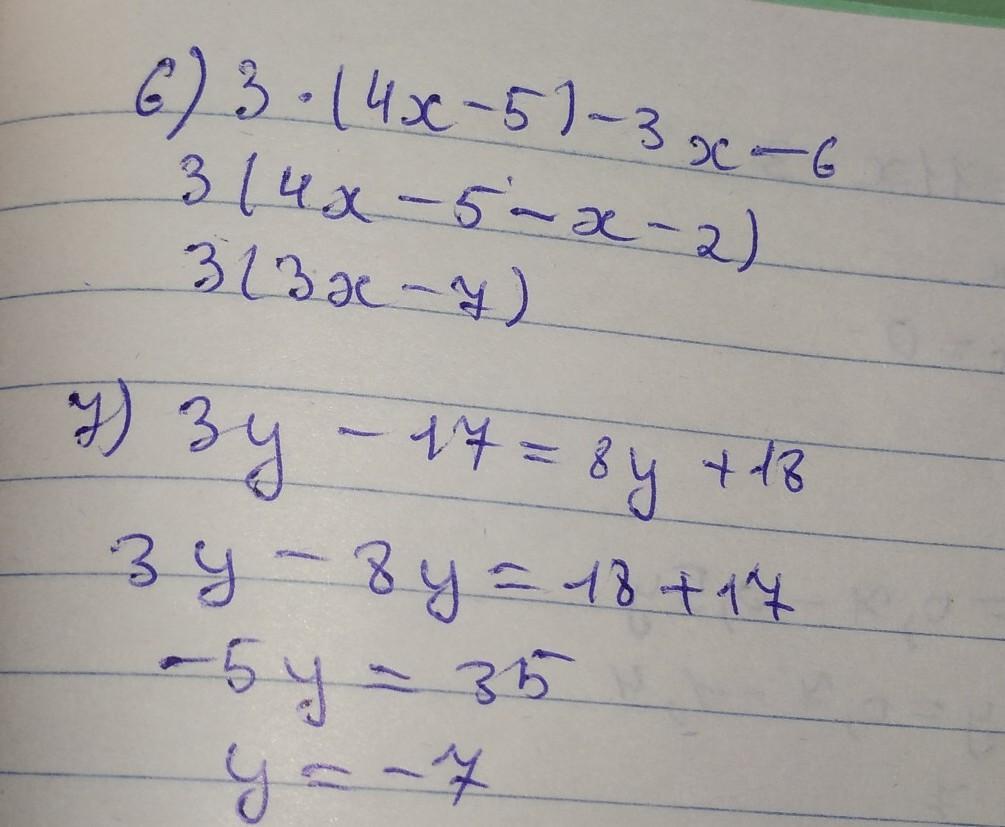 6) 3 · (4x - 5) - 3x - 6
3 (4x - 5 - x - 2)
3 (3x - 7)
7) 3y - 17 = 8y + 18
3y - 8y = 18 + 17
-5y = 35
y = -7